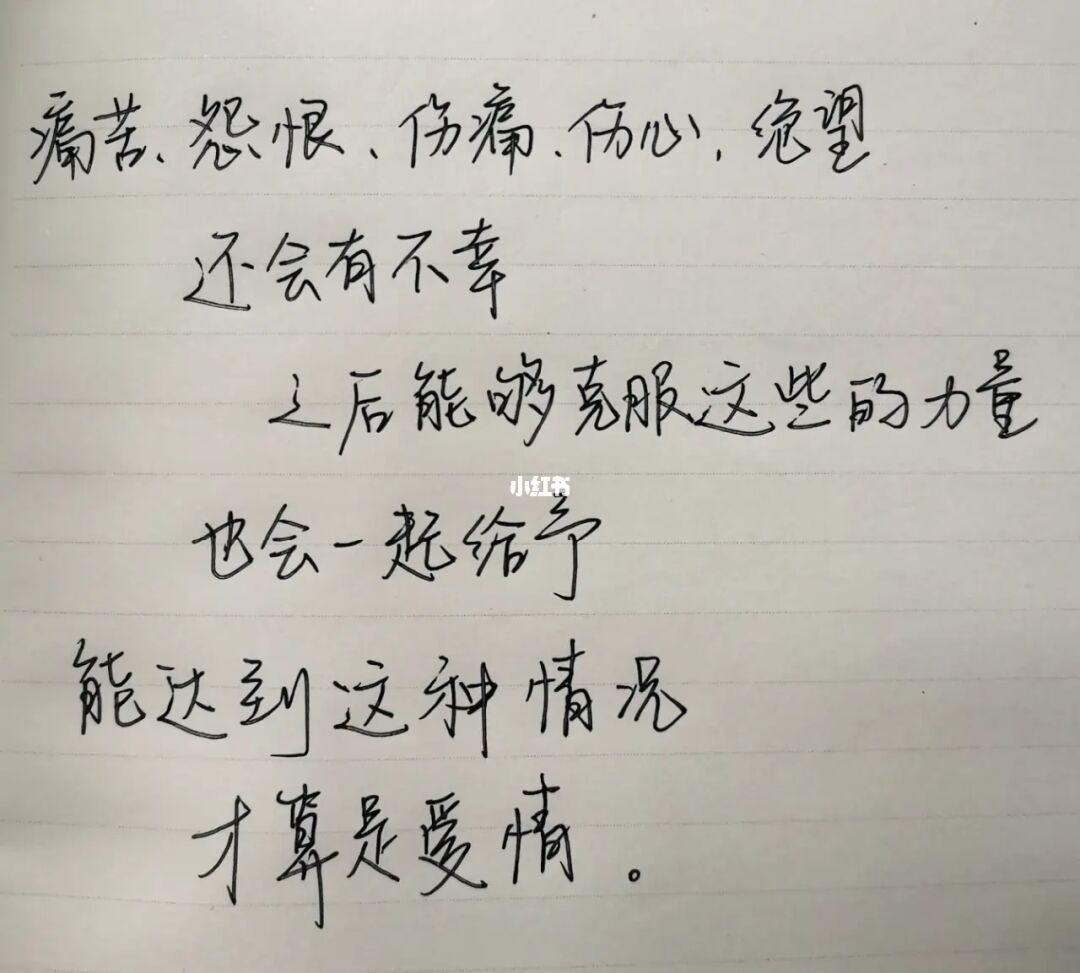 痛苦、怨恨、伤痛、伤心,绝望
还会有不幸
之后能够克服这些的力量
小红书
也会一起给予
能达到这种情况
才算是爱情。